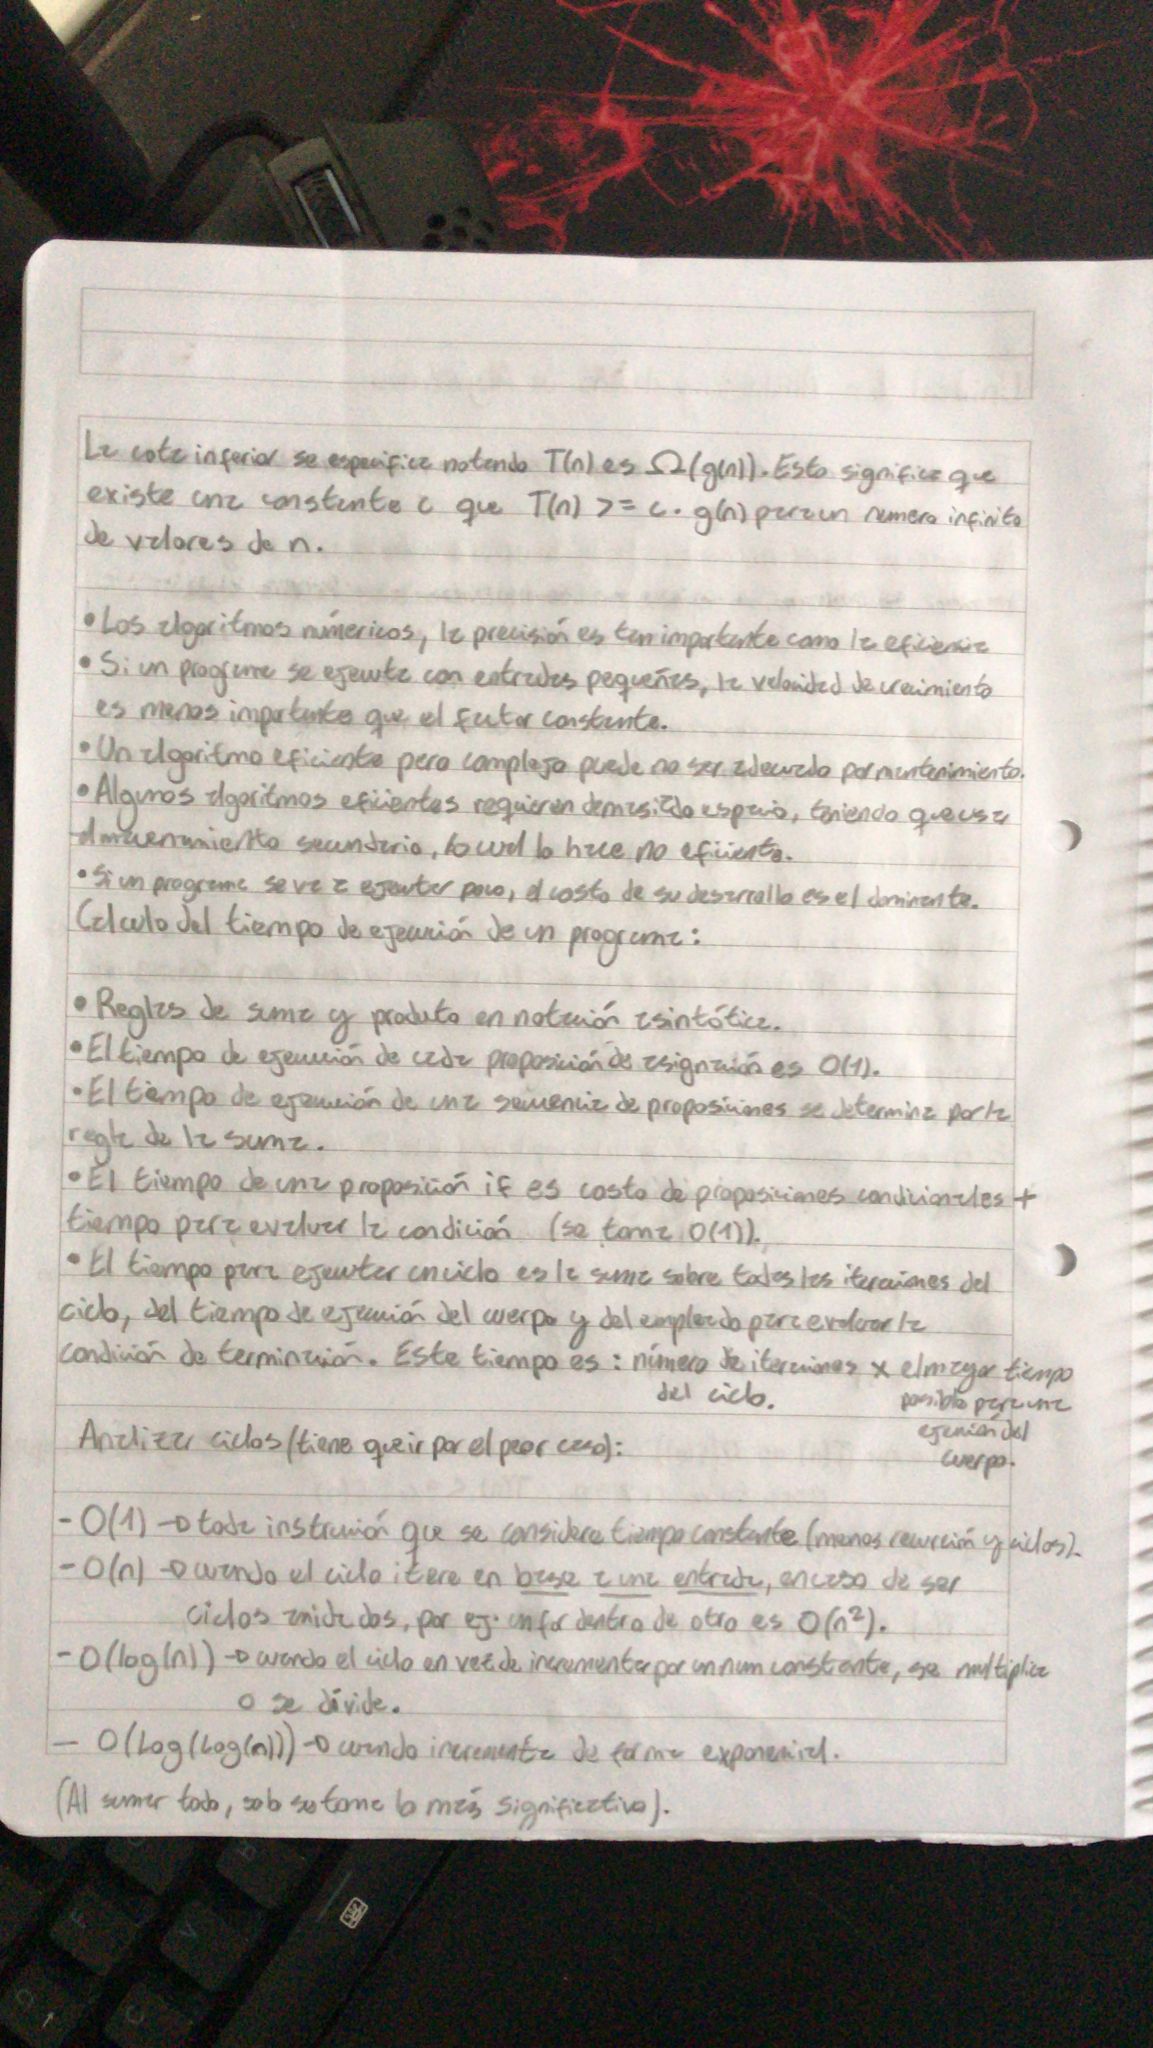 La cota inferior se especifica notando T(n) es Ω(g(n)). Esto significa que
existe una constante c que T(n) >= c. g(n) para un numero infinito
de valores de n.
• Los algoritmos númericos, la precisión es tan importante como la eficiencia
• Si un programa se ejecuta con entradas pequeñas, la velocidad de crecimiento
es menos importante que el factor constante.
• Un algoritmo eficiente pero complejo puede no ser adecuado por mantenimiento.
• Algunos algoritmos eficientes requieren demasiado espacio, teniendo que usar
almacenamiento secundario, lo cual lo hace no eficiente.
• Si un programa se va a ejecutar poco, el costo de su desarrollo es el dominante.
Calculo del tiempo de ejecución de un programa:
• Reglas de suma y producto en notación asintótica.
• El tiempo de ejecución de cada proposición de asignación es O(1).
• El tiempo de ejecución de una secuencia de proposiciones se determina por la
regla de la suma.
• El tiempo de una proposición if es costo de proposiciones condicionales +
tiempo para evaluar la condición (se toma O(1)).
• El tiempo para ejecutar un ciclo es la suma sobre todas las iteraciones del
ciclo, del tiempo de ejecución del cuerpo y del empleado para evaluar la
condición de terminación. Este tiempo es: número de iteraciones x el mayor tiempo
del ciclo. posible para una
ejecución del
cuerpo.
Analizar ciclos (tiene que ir por el peor caso):
- O(1) → toda instrucción que se considera tiempo constante (menos recursión y ciclos).
- O(n) → cuando el ciclo itere en base a una entrada, en caso de ser
ciclos anidados, por ej. un for dentro de otro es O(n²).
- O(log(n)) → cuando el ciclo en vez de incrementar por un num constante, se multiplica
o se divide.
- O(Log(Log(n))) → cuando incrementa de forma exponencial.
(Al sumar todo, solo se toma lo más significativo).